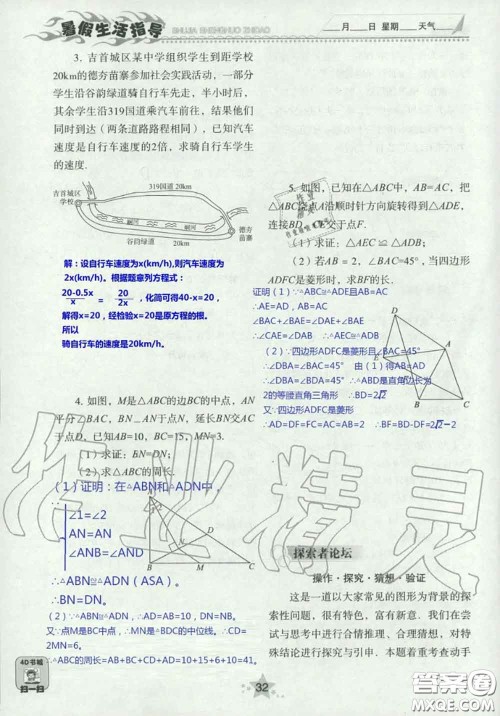 暑假生活指导
____月____日 星期____ 天气____
3. 吉首城区某中学组织学生到距学校
20km的德夯苗寨参加社会实践活动，一部分
学生沿谷韵绿道骑自行车先走，半小时后，
其余学生沿319国道乘汽车前往，结果他们
同时到达（两条道路路程相同），已知汽车
速度是自行车速度的2倍，求骑自行车学生
的速度.
吉首城区
学校
319国道 20km
峒河
峒河
谷韵绿道
20km
德夯
苗寨
解：设自行车速度为x(km/h),则汽车速度为
2x(km/h)。根据题意列方程式：
20-0.5x/x = 20/2x ，化简可得40-x=20，
解得x=20，经检验x=20是原方程的根。
所以
骑自行车的速度是20km/h。
4. 如图，M是△ABC的边BC的中点，AN
平分∠BAC，BN⊥AN于点N，延长BN交AC
于点D，已知AB=10，BC=15，MN=3.
（1）求证：BN=DN；
（2）求△ABC的周长.
（1）证明：在△ABN和△ADN中，
∵
∠1=∠2
AN=AN
∠ANB=∠AND
∴△ABN≌△ADN（ASA）。
∴BN=DN。
（2）∵△ABN≌△ADN ∴AD=AB=10，DN=NB。
又∵点M是BC中点，∴MN是△BDC的中位线。∴CD=
2MN=6。
∴△ABC的周长=AB+BC+CD+AD=10+15+6+10=41。
A
1
2
D
N
B
M
C
5. 如图，已知在△ABC中，AB=AC，把
△ABC绕点A沿顺时针方向旋转得到△ADE，
连接BD，CE交于点F.
（1）求证：△AEC≌△ADB；
（2）若AB = 2，∠BAC=45°，当四边形
ADFC是菱形时，求BF的长.
证明（1）∵△ABC≌△ADE且AB=AC
∴AE=AD，AB=AC
∠BAC+∠BAE=∠DAE+∠BAE
∴∠CAE=∠DAB ∴△AEC≌△ADB
（2）∵四边形ADFC是菱形且∠BAC=45°
∴∠DBA=∠BAC=45° 由（1）得AB=AD
∴∠DBA=∠BDA=45° ∴△ABD是直角边长为
2的等腰直角三角形 ∴BD=2√2
又∵四边形ADFC是菱形
∴AD=DF=FC=AC=AB=2 ∴BF=BD-DF=2√2−2
作业精灵
探索者论坛
操作·探究·猜想·验证
这是一道以大家常见的图形为背景的探
索性问题，很有特色，富有新意. 我们在尝
试与思考中进行合情推理、合理猜想，对特
殊结论进行探究与引申. 本题着重考查动手
4D书城
扫一扫
32
答案圈
MXQE.COM